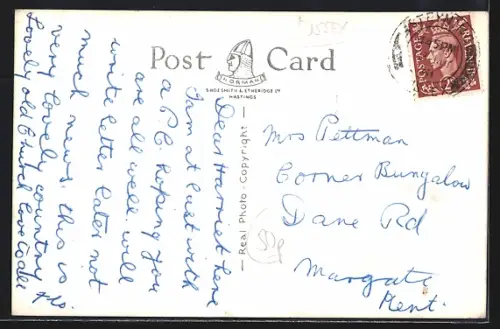 Post Card
NORMAN
SHOESMITH & ETHERIDGE LTD
HASTINGS
— Real Photo - Copyright —
Dear Harriet here
I am at last with
a P.C. hoping you
are all well. will
write letter later not
much news. this is
very lovely country
Lovely old Church love to all
Mrs Pettman
Corner Bungalow
Dane Rd
Margate
Kent.
POSTAGE
REVENUE
50p